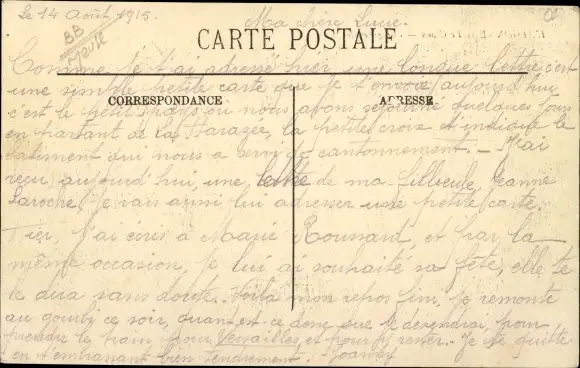 Le 14 Août 1915.
Ma chère Lucie.
BB
Meuse
CARTE POSTALE
CORRESPONDANCE
ADRESSE
Comme je t'ai adressé hier une longue lettre c'est
une simple petite carte que je t'envoie aujourd'hui
c'est le petit pays ou nous avons séjourné quelques jours
en partant de la Harazée, la petite croix t'indique le
batiment qui nous a servi de cantonnement. - J'ai
reçu aujourd'hui une lettre de ma filleule Jeanne
Laroche, je vais aussi lui adresser une petite carte.
Hier, j'ai écris à Marie et par la
même occasion, je lui ai souhaité sa fête, elle te
le dira sans doute. Voilà mon repos fini, je remonte
au gourbi ce soir, quant est-ce donc que je descendrai, pour
prendre le train pour Versailles, et pour y rester. Je te quitte
en t'embrassant bien tendrement.